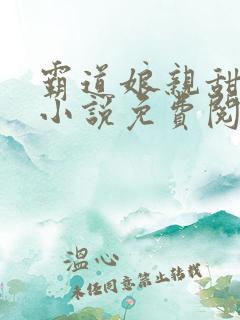 霸道娘親甜
小說免費閱
溫心
未經同意禁止轉載